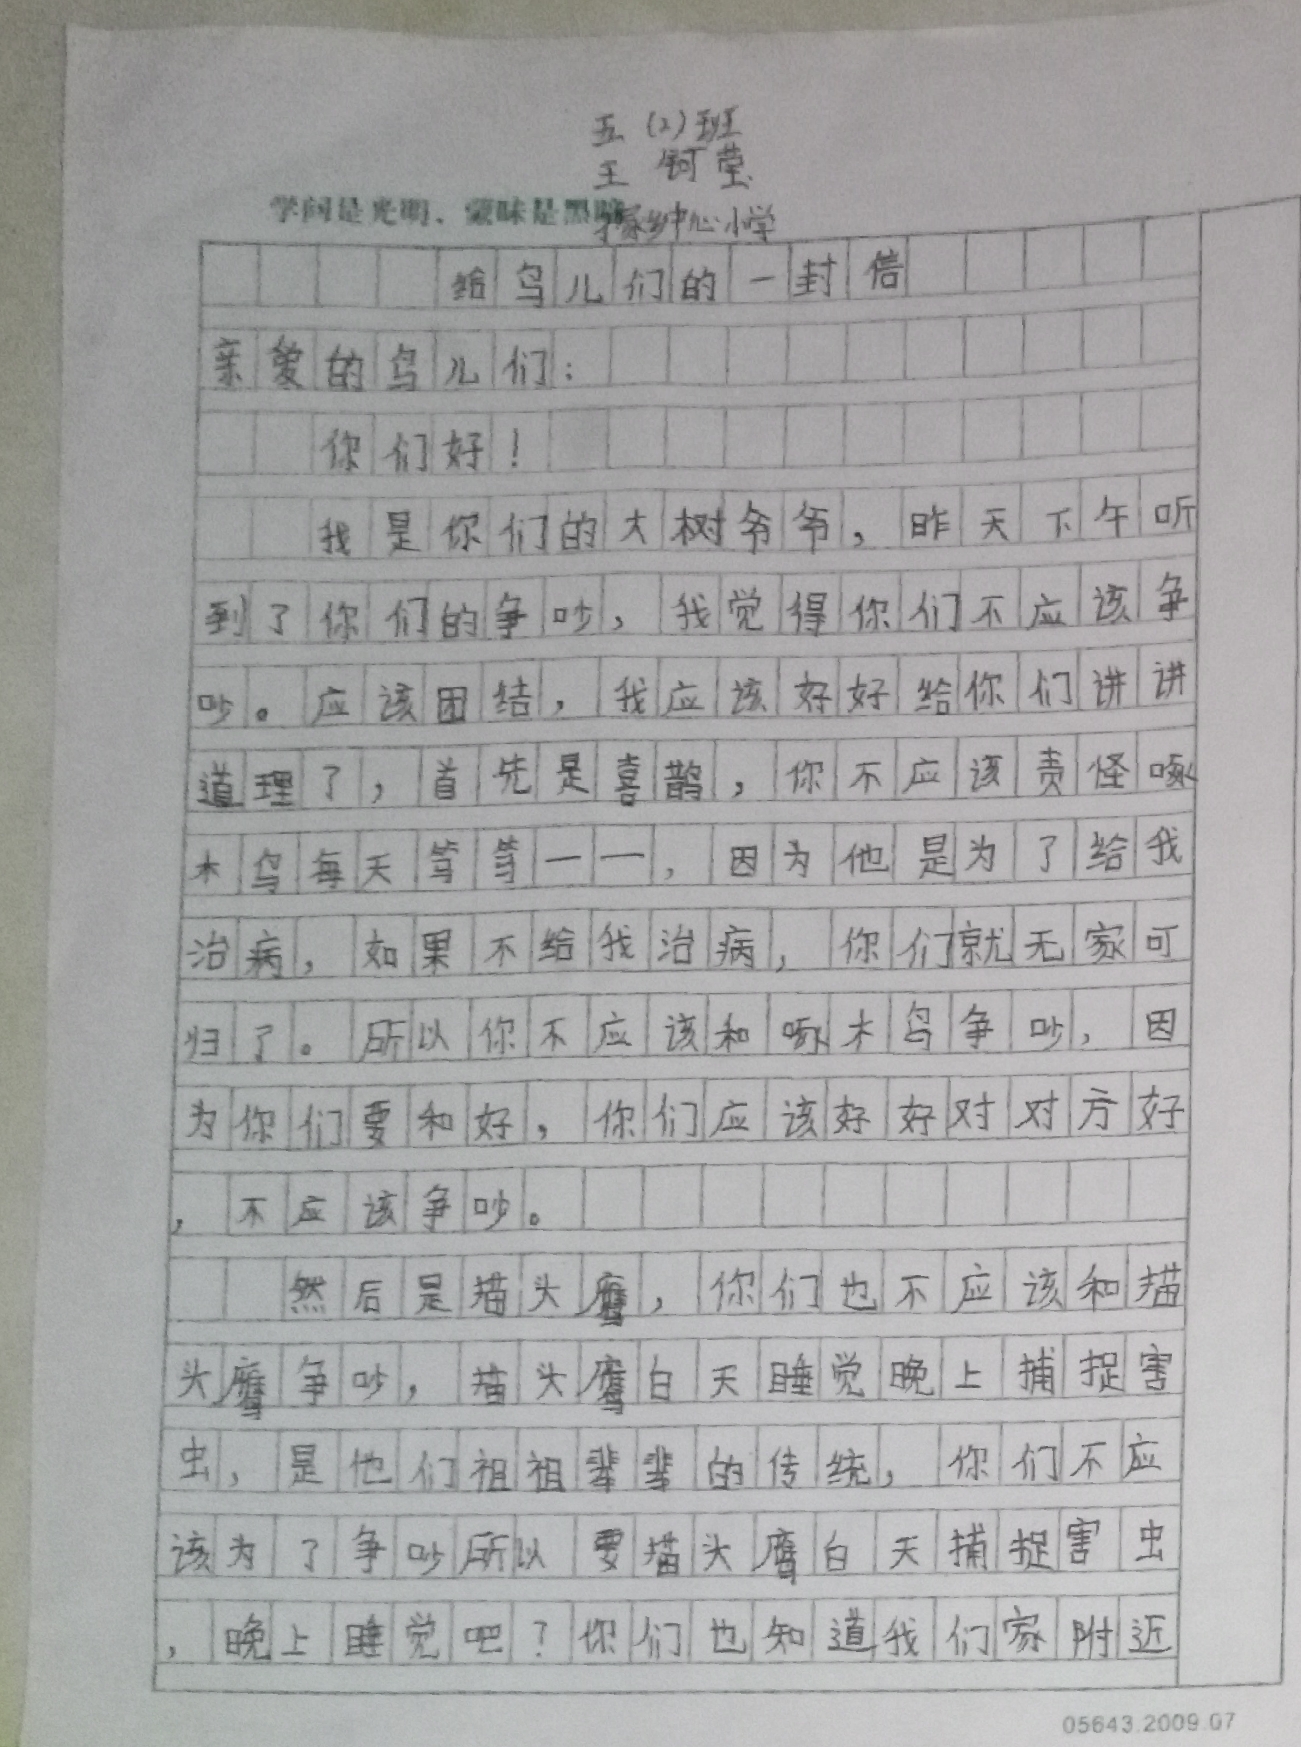 五(2)班
王钶莹
学问是光明、蒙昧是黑暗
家乡中心小学
给鸟儿们的一封信
亲爱的鸟儿们：
你们好！
我是你们的大树爷爷，昨天下午听
到了你们的争吵，我觉得你们不应该争
吵。应该团结，我应该好好给你们讲讲
道理了，首先是喜鹊，你不应该责怪啄
木鸟每天笃笃——，因为他是为了给我
治病，如果不给我治病，你们就无家可
归了。所以你不应该和啄木鸟争吵，因
为你们要和好，你们应该好好对对方好
，不应该争吵。
然后是猫头鹰，你们也不应该和猫
头鹰争吵，猫头鹰白天睡觉晚上捕捉害
虫，是他们祖祖辈辈的传统，你们不应
该为了争吵所以要猫头鹰白天捕捉害虫
，晚上睡觉吧？你们也知道我们家附近
05643.2009.07